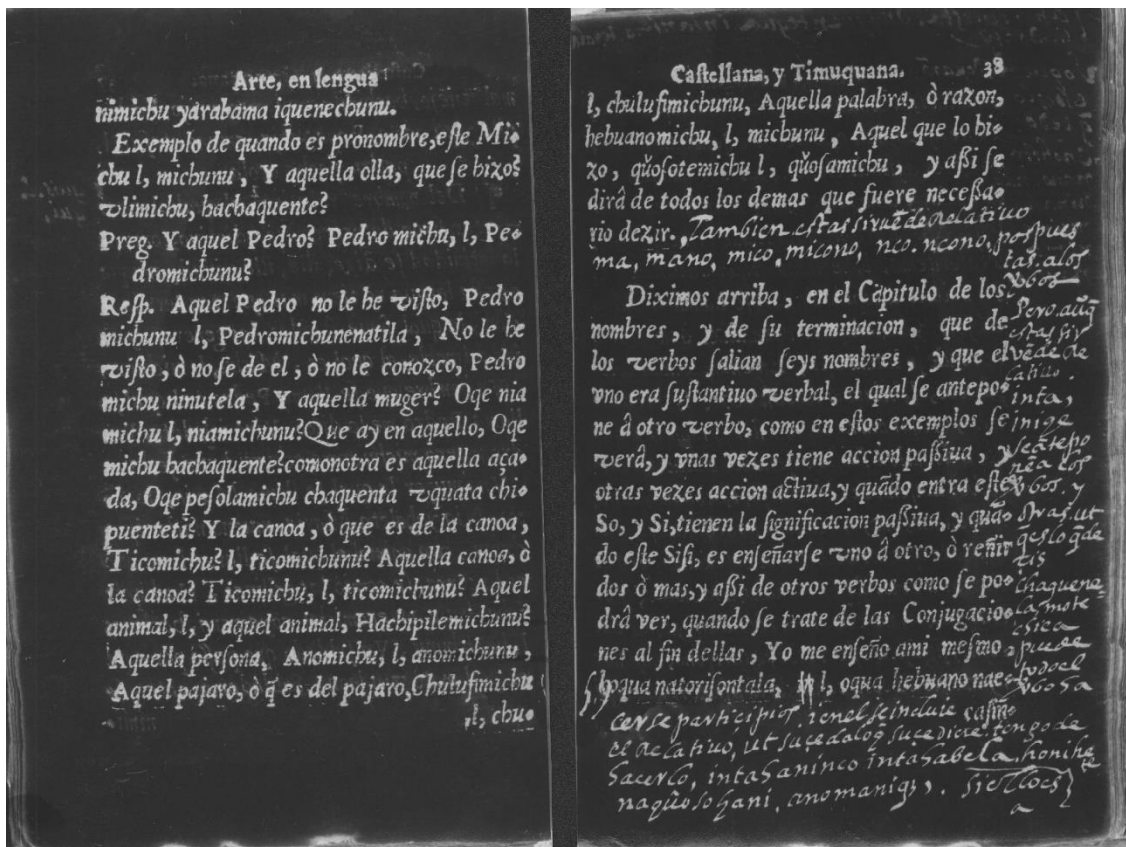 Arte, en lengua
nimichu yarabama iquenechunu.
Exemplo de quando es pronombre, este Mi-
chu l, michunu, Y aquella olla, que se hizo?
vlimichu, hachaquente?
Preg. Y aquel Pedro? Pedro michu, l, Pe-
dromichunu?
Resp. Aquel Pedro no le he visto, Pedro
michunu l, Pedromichunenatila, No le he
visto, ò no se de el, ò no le conozco, Pedro
michu ninutela, Y aquella muger? Oqe nia
michu l, niamichunu? Que ay en aquello, Oqe
michu hachaquente? comonotra es aquella aça-
da, Oqe pesolamichu chaquenta vquata chi-
puenteti? Y la canoa, ò que es de la canoa,
Ticomichu? l, ticomichunu? Aquella canoa, ò
la canoa? Ticomichu, l, ticomichunu? Aquel
animal, l, y aquel animal, Hachipilemichunu?
Aquella persona, Anomichu, l, anomichunu,
Aquel pajaro, ò q̃ es del pajaro, Chulufimichu
l, chu-
Castellana, y Timuquana. 38
l, chulufimichunu, Aquella palabra, ò razon,
hebuanomichu, l, michunu, Aquel que lo hi-
zo, qũosotemichu l, qũosamichu, y assi se
dirâ de todos los demas que fuere necessa-
rio dezir. Tambien estas siruē de relatiuo
ma, mano, mico, micono, nco. ncono, pospues
tas. alos
vbos
Diximos arriba, en el Capitulo de los
nombres, y de su terminacion, que de
los verbos salian seys nombres, y que el
vno era sustantiuo verbal, el qual se antepo-
ne â otro verbo, como en estos exemplos se
verâ, y vnas vezes tiene accion passiua, y
otras vezes accion actiua, y quãdo entra este
So, y Si, tienen la significacion passiua, y quã-
do este Sisi, es enseñarse vno â otro, ò reñir
dos ò mas, y assi de otros verbos como se po-
drâ ver, quando se trate de las Conjugacio-
nes al fin dellas, Yo me enseño ami mesmo,
Hoqua natorisontala, l, oqua hebuano nae-
casin-
Pero. auq̃
estas sir
vēde de
latiuo
inta,
inige
se ātepo
nēa los
vbos. y
otras. ut
q̃es lo q̃de
tis
chaquena
la mote
puede
todo el
vbo ha
cerse participios, i enel se incluie
el relatiuo, ut sucedaloq̃ sucediere. tengo de
hacerlo, intahaninco intahabela, honihe
naqũosohani, anomaniqȝ,